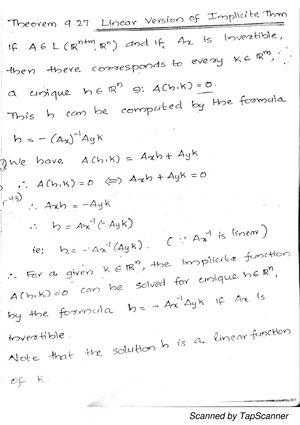 Theorem 9.27 Linear Version of Implicite Thm
If A ∈ L(R^n+m, R^n) and if Ax is Invertible,
then there corresponds to every k ∈ R^m,
a unique h ∈ R^n ∋: A(h,k) = 0.
This h can be computed by the formula
h = -(Ax)^-1 Ayk
We have A(h,k) = Axh + Ayk
∴ A(h,k) = 0 ⟺ Axh + Ayk = 0
∴ Axh = -Ayk
∴ h = Ax^-1(-Ayk)
ie; h = -Ax^-1(Ayk). (∵ Ax^-1 is linear)
∴ For a given k ∈ R^m, the Implicite function
A(h,k) = 0 can be solved for unique h ∈ R^n,
by the formula h = -Ax^-1 Ayk if Ax is
invertible.
Note that the solution h is a linear function
of k
Scanned by TapScanner